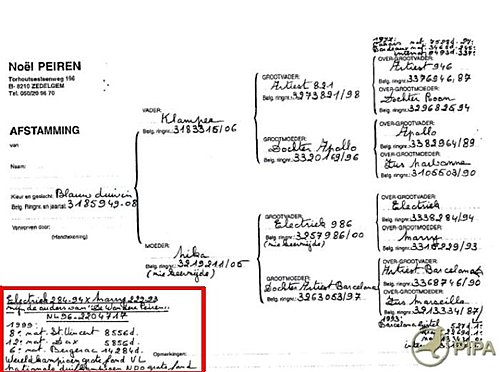 Noël PEIREN
Torhoutsesteenweg 196
B - 8210 ZEDELGEM
Tel. 050/20 96 70
AFSTAMMING
van
Naam:
Kleur en geslacht: Blauw duivin
Belg. Ringnr. en jaartal: 3185949-08
Voor overschrijving
(Handtekening)
VADER:
Klamper
Belg. ringnr.: 3183315/06
MOEDER:
Nika
Belg. ringnr.: 3219211/05
GROOTVADER:
Artiest 821
Belg. ringnr.: 3273821/98
GROOTMOEDER:
Dochter Apollo
Belg. ringnr.: 3320169/96
GROOTVADER:
Electriek 986
Belg. ringnr.: 3257986/00
GROOTMOEDER:
Dochter Artiest Barcelona
Belg. ringnr.: 3263053/97
OVER-GROOTVADER:
Artiest 946
Belg. ringnr.: 3376946/87
OVER-GROOTMOEDER:
Dochter Poon
Belg. ringnr.: 3296826/94
OVER-GROOTVADER:
Apollo
Belg. ringnr.: 3382964/89
OVER-GROOTMOEDER:
Zus Narbonne
Belg. ringnr.: 3105503/90
OVER-GROOTVADER:
Electriek
Belg. ringnr.: 3338284/94
OVER-GROOTMOEDER:
Harry
Belg. ringnr.: 3310229/93
OVER-GROOTVADER:
Artiest Barcelona
OVER-GROOTMOEDER:
Zus Marseille
Belg. ringnr.: 3213334/87
Electriek 284-94 x Harry 229-93
NL 96-2204717
1999:
8e nat. St. Vincent 8556d.
12e nat. Dax 5856d.
6e nat. Bergerac 14284d.
Wereldkampioen grote fond VL
nationale duifkampioen NPO grote fond
Opmerkingen:
PIPA